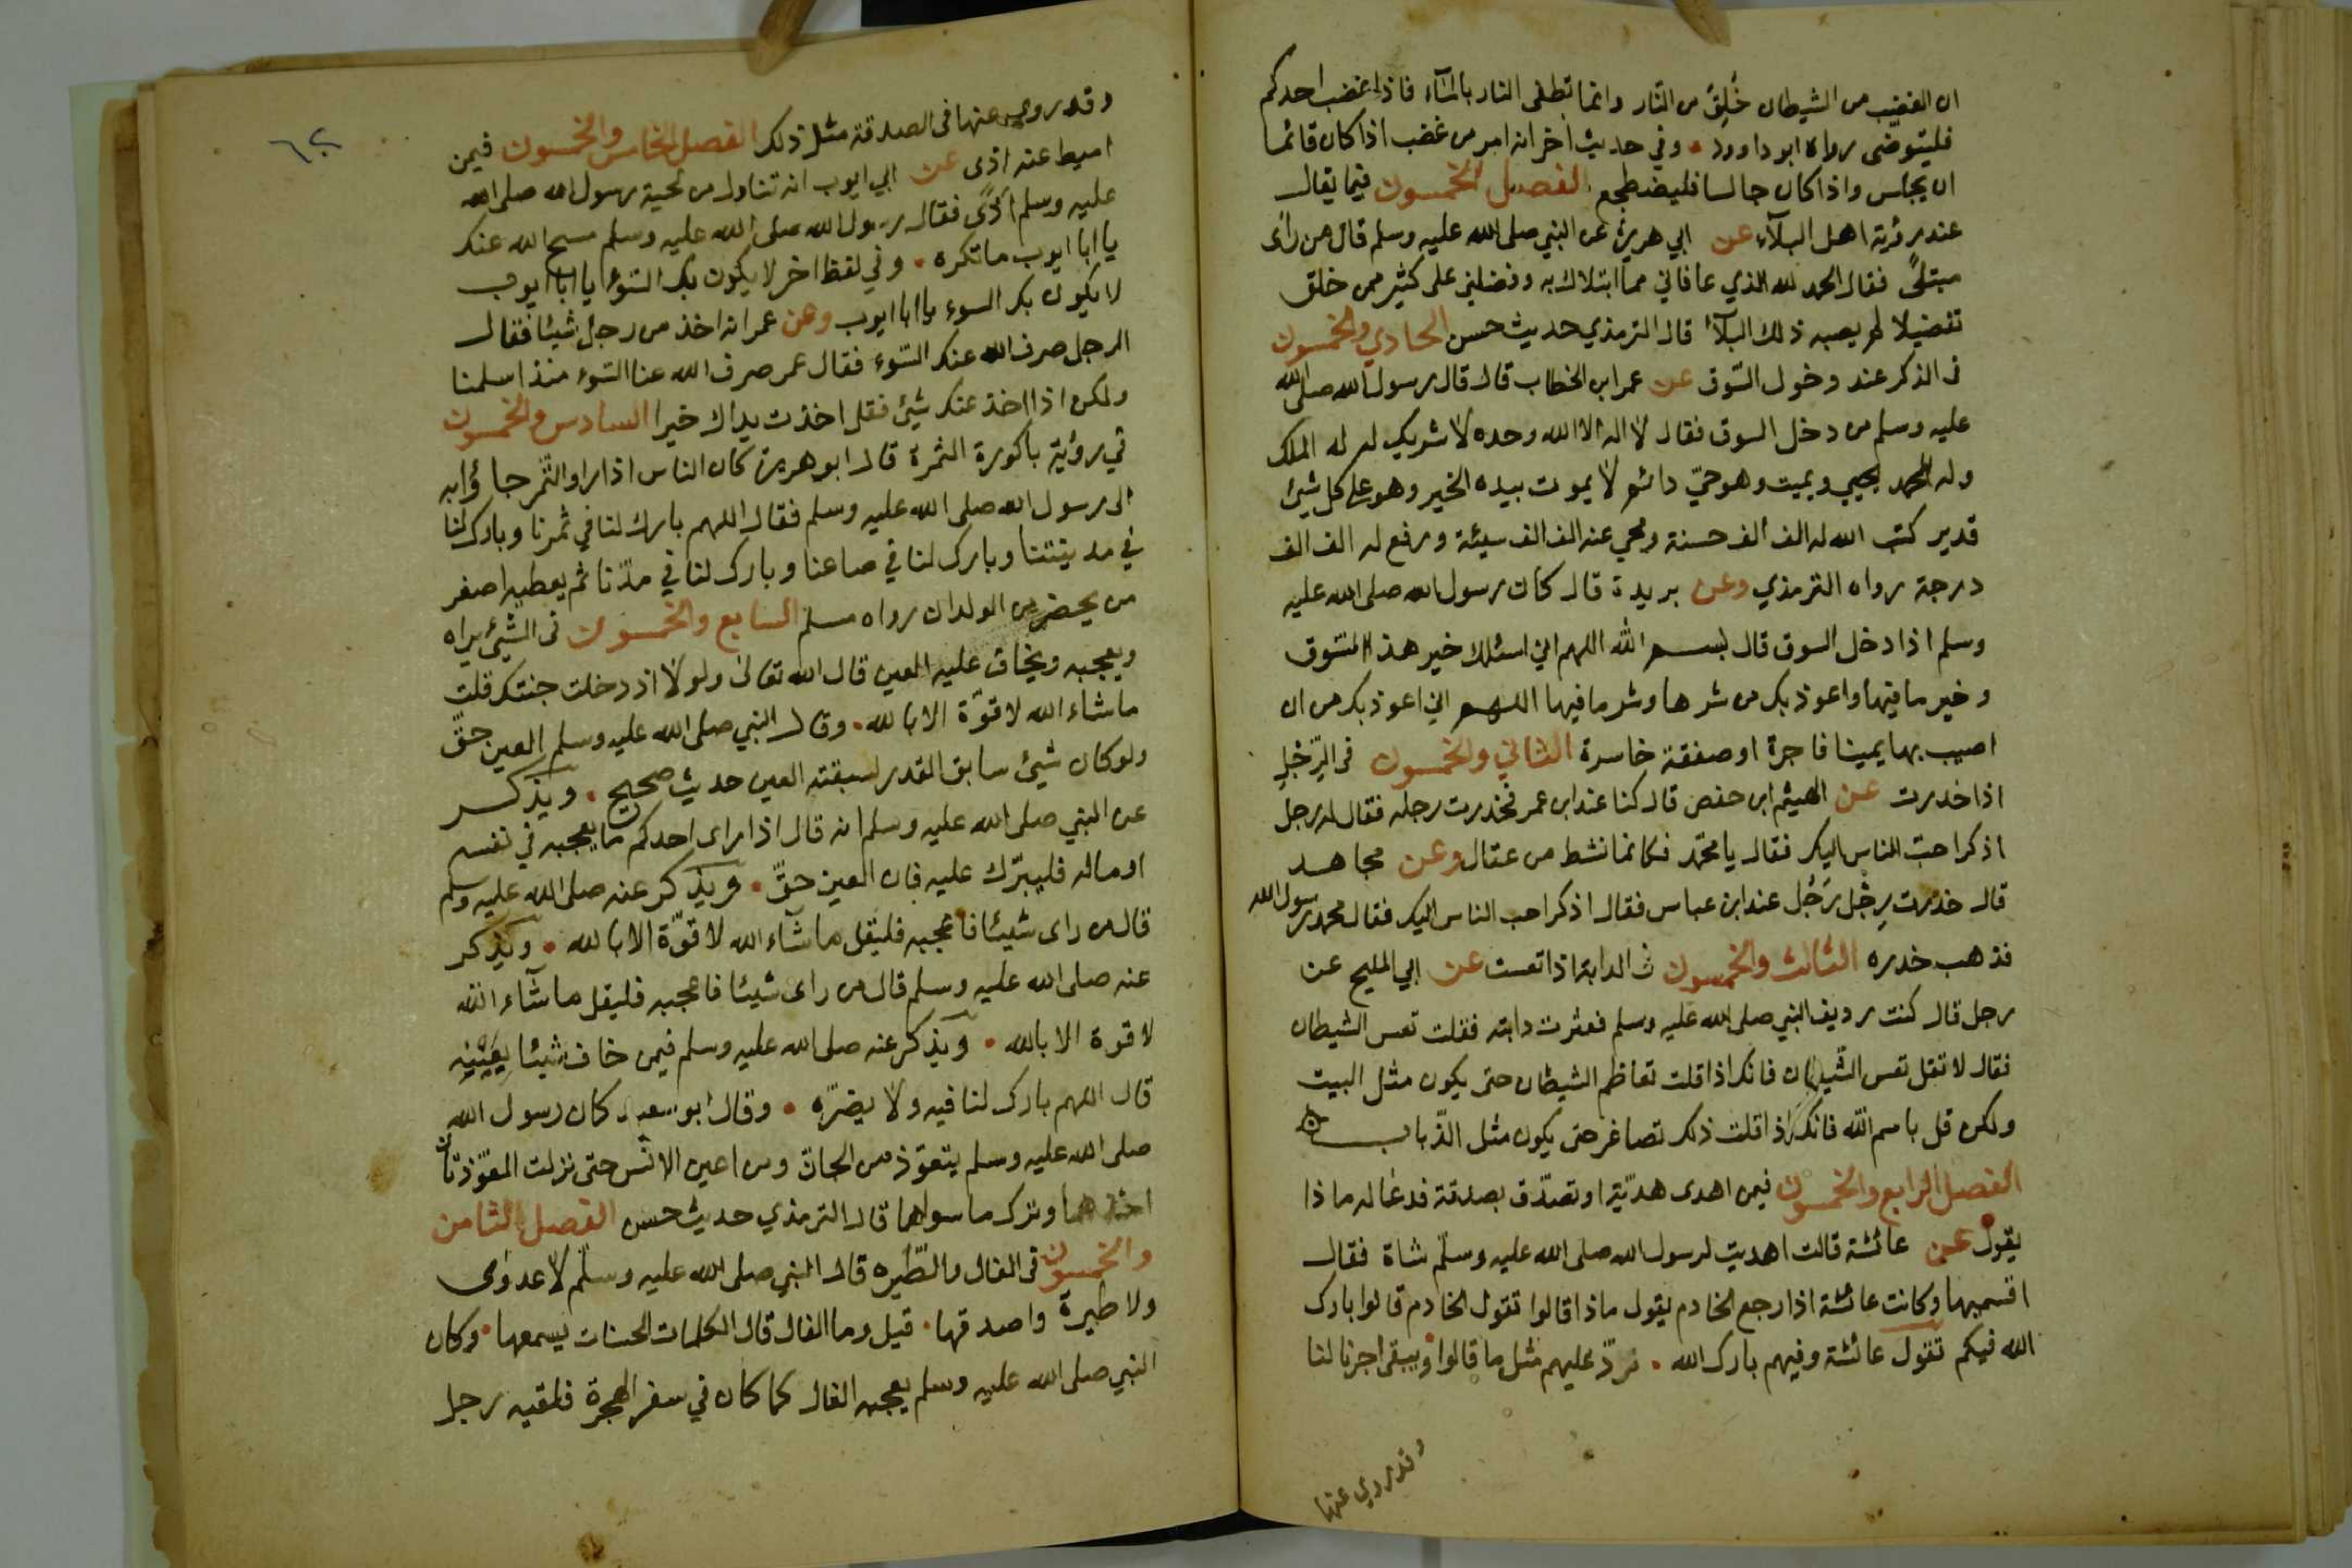 ان الغضب من الشيطان خُلِقَ من النار وانما تطفى النار بالمآء فاذا غضب احدكم
فليتوضى رواه ابو داود • وفي حديث اخر انه امر من غضب اذا كان قائما
ان يجلس واذا كان جالسا فليضطجع الفصل الخمسون فيما يقال
عند رؤية اهل البلآء عن ابي هريرة عن النبي صلى الله عليه وسلم قال من رأى
مبتلىً فقال الحمد لله الذي عافاني مما ابتلاك به وفضلني على كثير ممن خلق
تفضيلا لم يصبه ذلك البلآء قال الترمذي حديث حسن الحادي والخمسون
فى الذكر عند دخول السّوق عن عمر ابن الخطاب قال قال رسول الله صلى الله
عليه وسلم من دخل السوق فقال لا اله الا الله وحده لا شريك له له الملك
وله الحمد يحيي ويميت وهو حيّ دائم لا يموت بيده الخير وهو على كل شيئ
قدير كتب الله له الف ألف حسنة ومحي عنه الف الف سيئة ورفع له الف الف
درجة رواه الترمذي وعن بريدة قال كان رسول الله صلى الله عليه
وسلم اذا دخل السوق قال بسم الله اللهم اني اسئلك خير هذا السّوق
وخير ما فيها واعوذ بك من شرها وشر ما فيها اللهم اني اعوذ بك من ان
اصيب بها يمينا فاجرة او صفقة خاسرة الثاني والخمسون فى الرِّجل
اذا خدرت عن الهيثم ابن حفص قال كنا عند ابن عمر فخدرت رجله فقال له رجل
اذكر احبّ الناس اليك فقال يا محمّد فكانما نشط من عقال وعن مجاهد
قال خدرت رِجْل رَجُل عند ابن عباس فقال اذكر احب الناس اليك فقال محمد رسول الله
فذهب خدره الثالث والخمسون فى الدابة اذا تعست عن ابي المليح عن
رجل قال كنت رديف النبي صلى الله عليه وسلم فعثرت دابته فقلت تعس الشيطان
فقال لا تقل تعس الشّيطان فانك اذا قلت تعاظم الشيطان حتى يكون مثل البيت
ولكن قل باسم الله فانك اذا قلت ذلك تصاغر حتى يكون مثل الذّباب ه
الفصل الرابع والخمسون فيمن اهدى هديّة او تصدّق بصدقة فدعا له ماذا
يقول عن عائشة قالت اهديت لرسول الله صلى الله عليه وسلّم شاة فقال
اقسميها وكانت عائشة اذا رجع الخادم يقول ماذا قالوا تقول الخادم قالوا بارك
الله فيكم تقول عائشة وفيهم بارك الله • نردّ عليهم مثل ما قالوا ويبقى اجرنا لنا
وقد روي عنها
٦٢
وقد روي عنها فى الصدقة مثل ذلك الفصل الخامس والخمسون فيمن
اميط عنه اذى عن ابي ايوب انه تناول من لحية رسول الله صلى الله
عليه وسلم اَذًى فقال رسول الله صلى الله عليه وسلم مسح الله عنك
يا ابا ايوب ما تكره • وفي لفظ اخر لا يكون بك السّوء يا ابا ايوب
لا يكون بك السوء يا ابا ايوب وعن عمر انه اخذ من رجل شيئا فقال
الرجل صرف الله عنك السّوء فقال عمر صرف الله عنا السّوء منذ اسلمنا
ولكن اذا اخذ عنك شيئ فقل اخذت يداك خيرا السادس والخمسون
في رؤية باكورة الثمرة قال ابو هريرة كان الناس اذا راوا الثّمر جاؤا به
الى رسول الله صلى الله عليه وسلم فقال اللهم بارك لنا في ثمرنا وبارك لنا
في مدينتنا وبارك لنا في صاعنا وبارك لنا في مدّنا ثم يعطيه اصغر
من يحضر من الولدان رواه مسلم السابع والخمسون فى الشيئ يراه
ويعجبه ويخاف عليه العين قال الله تعالى ولولا اذ دخلت جنتك قلت
ما شاء الله لا قوّة الا بالله • وقال النبي صلى الله عليه وسلم العين حقّ
ولو كان شيئ سابق القدر لسبقته العين حديث صحيح • ويذكر
عن النبي صلى الله عليه وسلم انه قال اذا راى احدكم ما يعجبه في نفسه
او ماله فليبرّك عليه فان العين حقّ • ويذكر عنه صلى الله عليه وسلم
قال من راى شيئا فاعجبه فليقل ما شآء الله لا قوّة الا بالله • ويذكر
عنه صلى الله عليه وسلم قال من راى شيئا فاعجبه فليقل ما شآء الله
لا قوة الا بالله • ويذكر عنه صلى الله عليه وسلم فيمن خاف شيئا بِعَيْنِهِ
قال اللهم بارك لنا فيه ولا يضرّه • وقال ابو سعيد كان رسول الله
صلى الله عليه وسلم يتعوّذ من الجانّ ومن اعين الانس حتى نزلت المعوّذتان
اخذهما وترك ما سواهما قال الترمذي حديث حسن الفصل الثامن
والخمسون فى الفال والطّيره قال النبي صلى الله عليه وسلّم لا عدوى
ولا طيرة واصدقها • قيل وما الفال قال الكلمات الحسنات يسمعها • وكان
النبي صلى الله عليه وسلم يعجبه الفال كما كان في سفر الهجرة فلقيه رجل